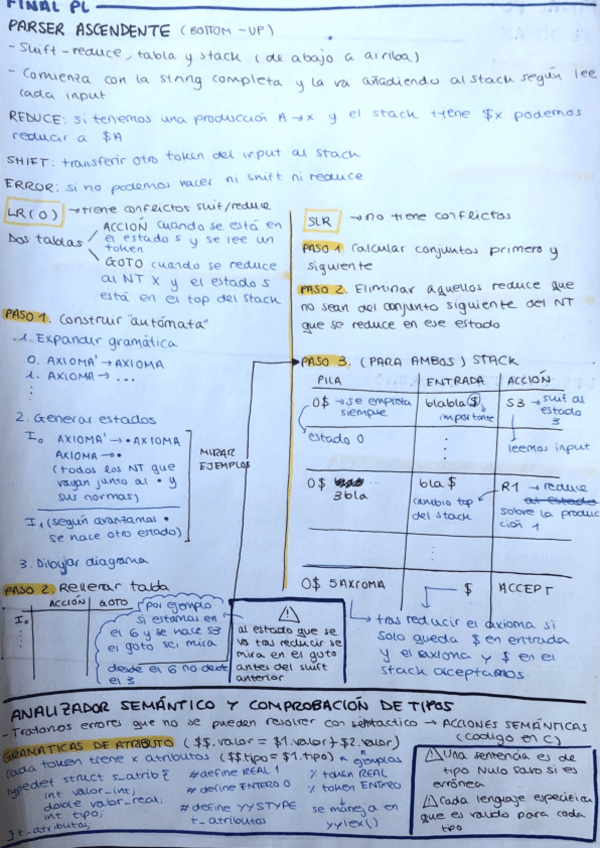 FINAL PL
PARSER ASCENDENTE (BOTTOM-UP)
- Shift-reduce, tabla y stack (de abajo a arriba)
- Comienza con la string completa y la va añadiendo al stack según lee
cada input
REDUCE: si tenemos una producción A→x y el stack tiene $x podemos
reducir a $A
SHIFT: transferir otro token del input al stack
ERROR: si no podemos hacer ni shift ni reduce
LR(0) → tiene conflictos shift/reduce
Dos tablas
ACCIÓN cuando se está en
el estado s y se lee un
token
GOTO cuando se reduce
al NT X y el estado s
está en el top del stack
PASO 1. Construir "autómata"
1. Expandir gramática
0. AXIOMA' → AXIOMA
1. AXIOMA → ...
⋮
2. Generar estados
I₀ AXIOMA' → • AXIOMA
AXIOMA → •
(todos los NT que
vayan junto al • y
sus normas)
I₁ (según avanzamos •
se hace otro estado)
MIRAR
EJEMPLOS
3. Dibujar diagrama
PASO 2. Rellenar tabla
ACCIÓN | GOTO
I₀
⋮
por ejemplo
si estamos en
el 6 y se hace S3
el goto se mira
desde el 6 no desde
el 3
⚠
al estado que se
va tras reducir se
mira en el goto
antes del shift
anterior
SLR → no tiene conflictos
PASO 1. Calcular conjuntos primero y
siguiente
PASO 2. Eliminar aquellos reduce que
no sean del conjunto siguiente del NT
que se reduce en ese estado
PASO 3. (PARA AMBOS) STACK
PILA | ENTRADA | ACCIÓN
0$ → se empieza siempre | blabla $ importante | S3 → shift al estado 3
estado 0 | leemos input
⋮
0$ 3bla | bla $ | R1 → reduce
cambio top del stack | al estado sobre la producción 1
⋮
0$ 5AXIOMA | $ | ACCEPT
tras reducir el axioma si
solo queda $ en entrada
y el axioma y $ en el
stack aceptamos
ANALIZADOR SEMÁNTICO Y COMPROBACIÓN DE TIPOS
- Tratamos errores que no se pueden resolver con sintáctico → ACCIONES SEMÁNTICAS
(codigo en C)
GRAMÁTICAS DE ATRIBUTO ($$.valor = $1.valor + $2.valor)
cada token tiene x atributos ($$tipo = $1.tipo) ejemplos
typedef struct s_atrib {
int valor_int;
double valor_real;
int tipo;
} t_atributos;
#define REAL 1
#define ENTERO 0
#define YYSTYPE
t_atributos
% token REAL
% token ENTERO
se maneja en
yylex()
⚠ Una sentencia es de
tipo Nulo salvo si es
errónea
⚠ Cada lenguaje especifica
que es valido para cada
tipo